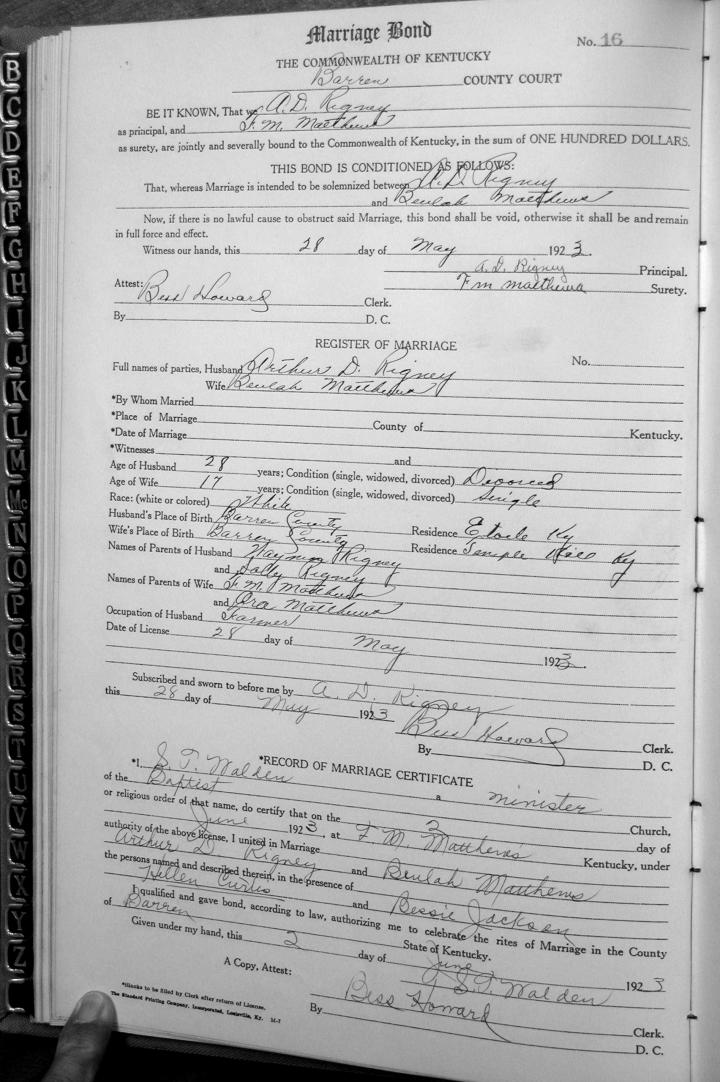 Marriage Bond
No. 16
THE COMMONWEALTH OF KENTUCKY
Barren COUNTY COURT
BE IT KNOWN, That we A. D. Rigney
as principal, and F. M. Matthews
as surety, are jointly and severally bound to the Commonwealth of Kentucky, in the sum of ONE HUNDRED DOLLARS.
THIS BOND IS CONDITIONED AS FOLLOWS:
That, whereas Marriage is intended to be solemnized between A. D. Rigney
and Beulah Matthews
Now, if there is no lawful cause to obstruct said Marriage, this bond shall be void, otherwise it shall be and remain
in full force and effect.
Witness our hands, this 28 day of May 1923.
A. D. Rigney Principal.
Attest: F M Matthews Surety.
Bess Howard Clerk.
By D. C.
REGISTER OF MARRIAGE
No.
Full names of parties, Husband Arthur D. Rigney
Wife Beulah Matthews
*By Whom Married
*Place of Marriage County of Kentucky.
*Date of Marriage
*Witnesses and
Age of Husband 28 years; Condition (single, widowed, divorced) Divorced
Age of Wife 17 years; Condition (single, widowed, divorced) Single
Race: (white or colored) White
Husband's Place of Birth Barren County Residence Etoile Ky
Wife's Place of Birth Barren County Residence Temple Hill Ky
Names of Parents of Husband Rigney
and Sally Rigney
Names of Parents of Wife F. M. Matthews
and Ora Matthews
Occupation of Husband Farmer
Date of License 28 day of May 1923.
Subscribed and sworn to before me by A. D. Rigney
this 28 day of May 1923
Bess Howard Clerk.
By D. C.
*RECORD OF MARRIAGE CERTIFICATE
*I, S. T. Walden a minister
of the Baptist Church,
or religious order of that name, do certify that on the 2 day of
June 1923, at F. M. Matthews Kentucky, under
authority of the above license, I united in Marriage
Arthur D. Rigney and Beulah Matthews
the persons named and described therein, in the presence of
Hellen Curtis and Bessie Jackson
I qualified and gave bond, according to law, authorizing me to celebrate the rites of Marriage in the County
of Barren State of Kentucky.
Given under my hand, this 2 day of June 1923
S. T. Walden
A Copy, Attest: Bess Howard Clerk.
By D. C.
*Blanks to be filled by Clerk after return of License.
The Standard Printing Company, Incorporated, Louisville, Ky. M-7
B
C
D
E
F
G
H
I
J
K
L
M
Mc
N
O
P
Q
R
S
T
U
V
W
X
Y
Z